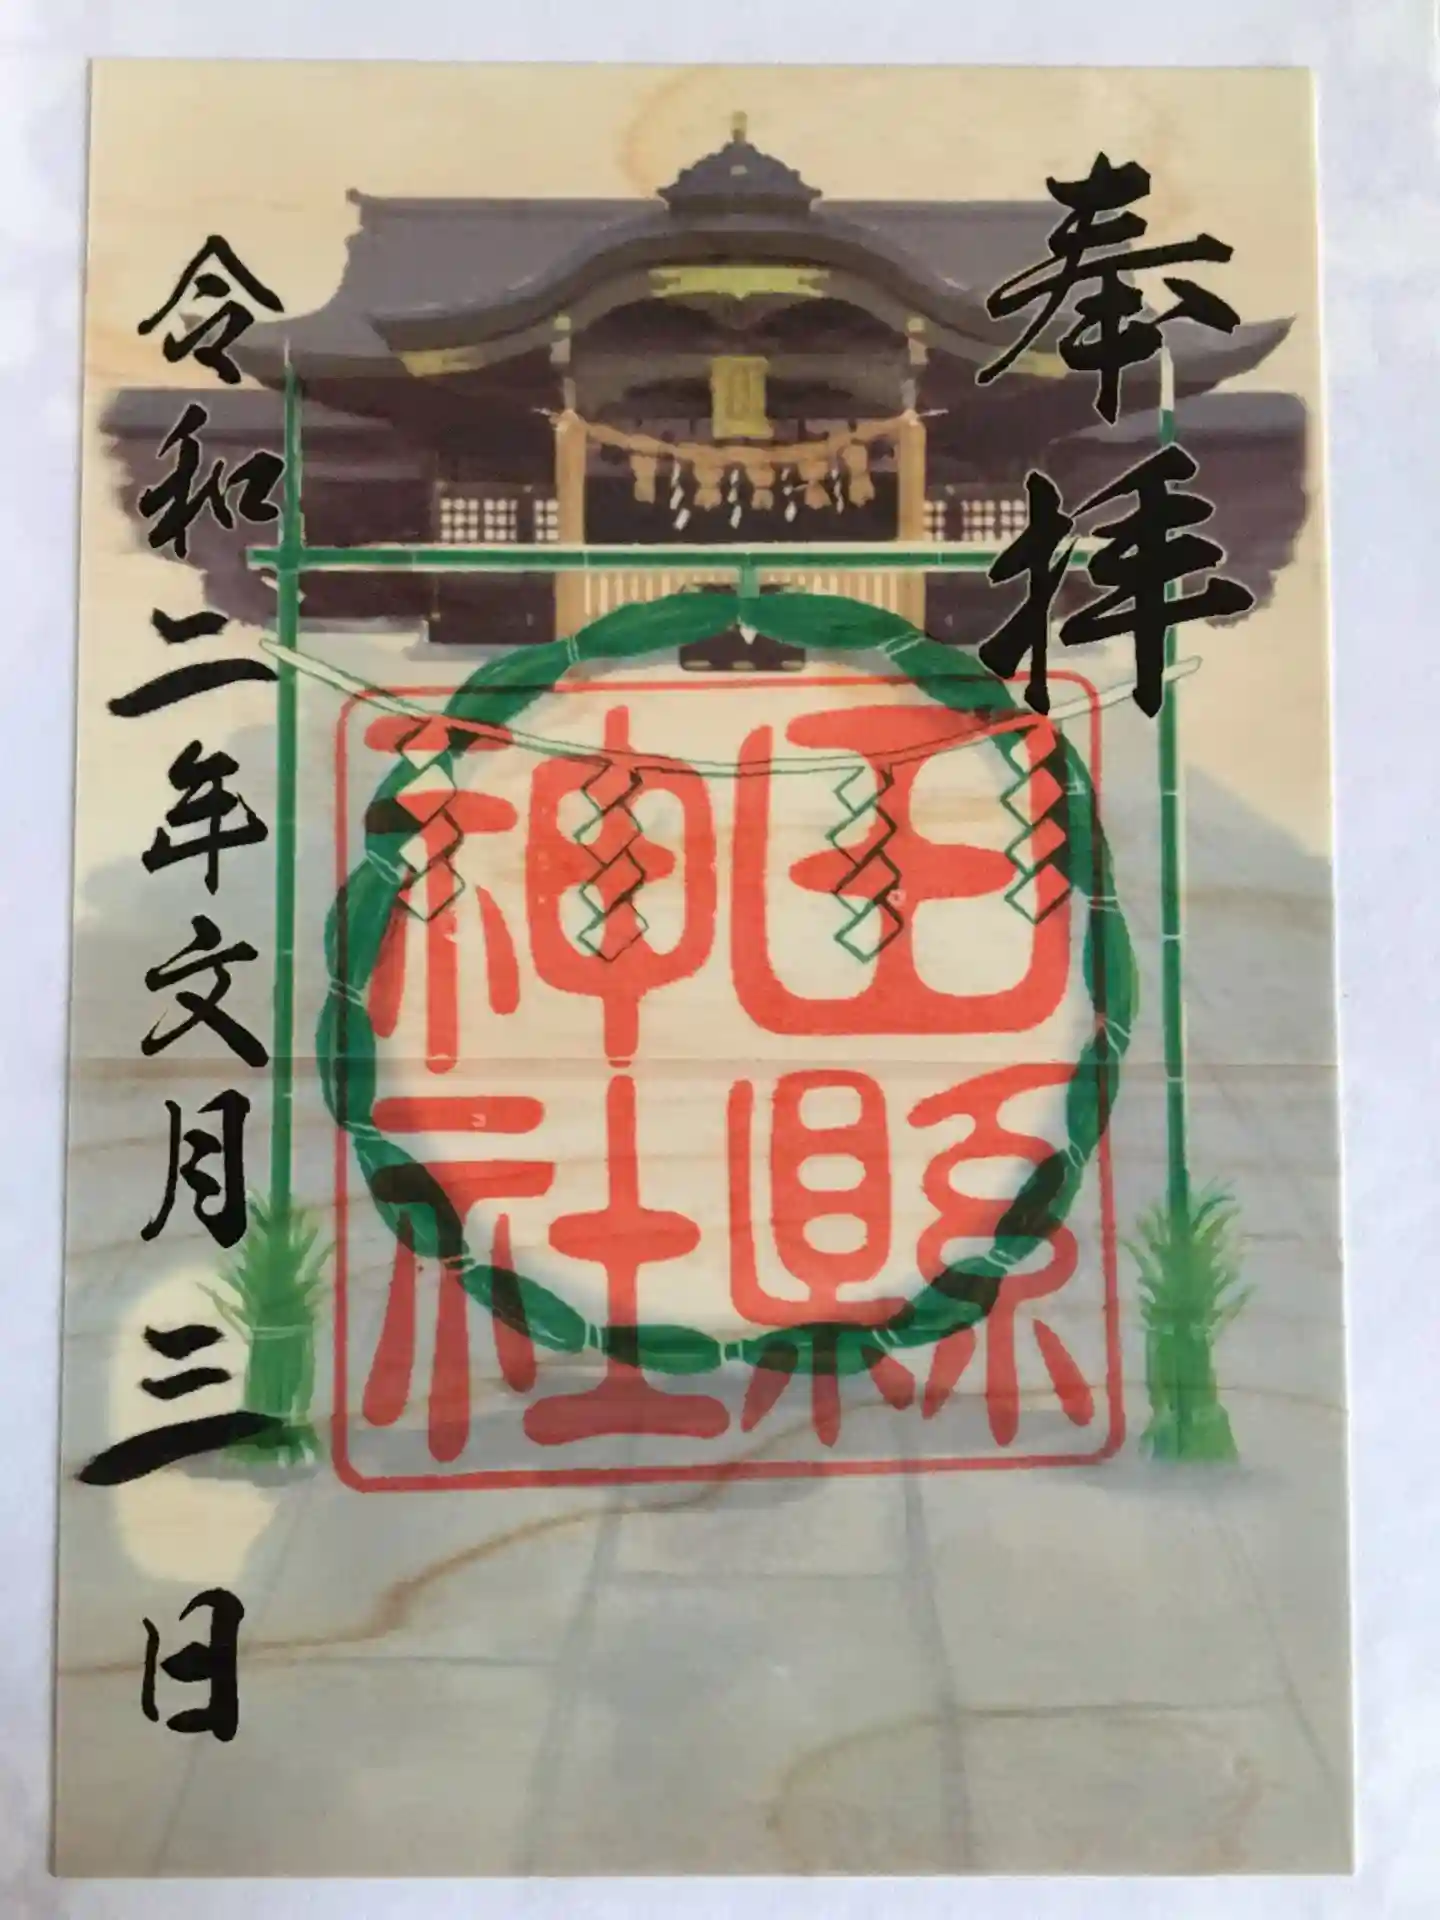 奉拝
田縣
神社
令和二年文月三日